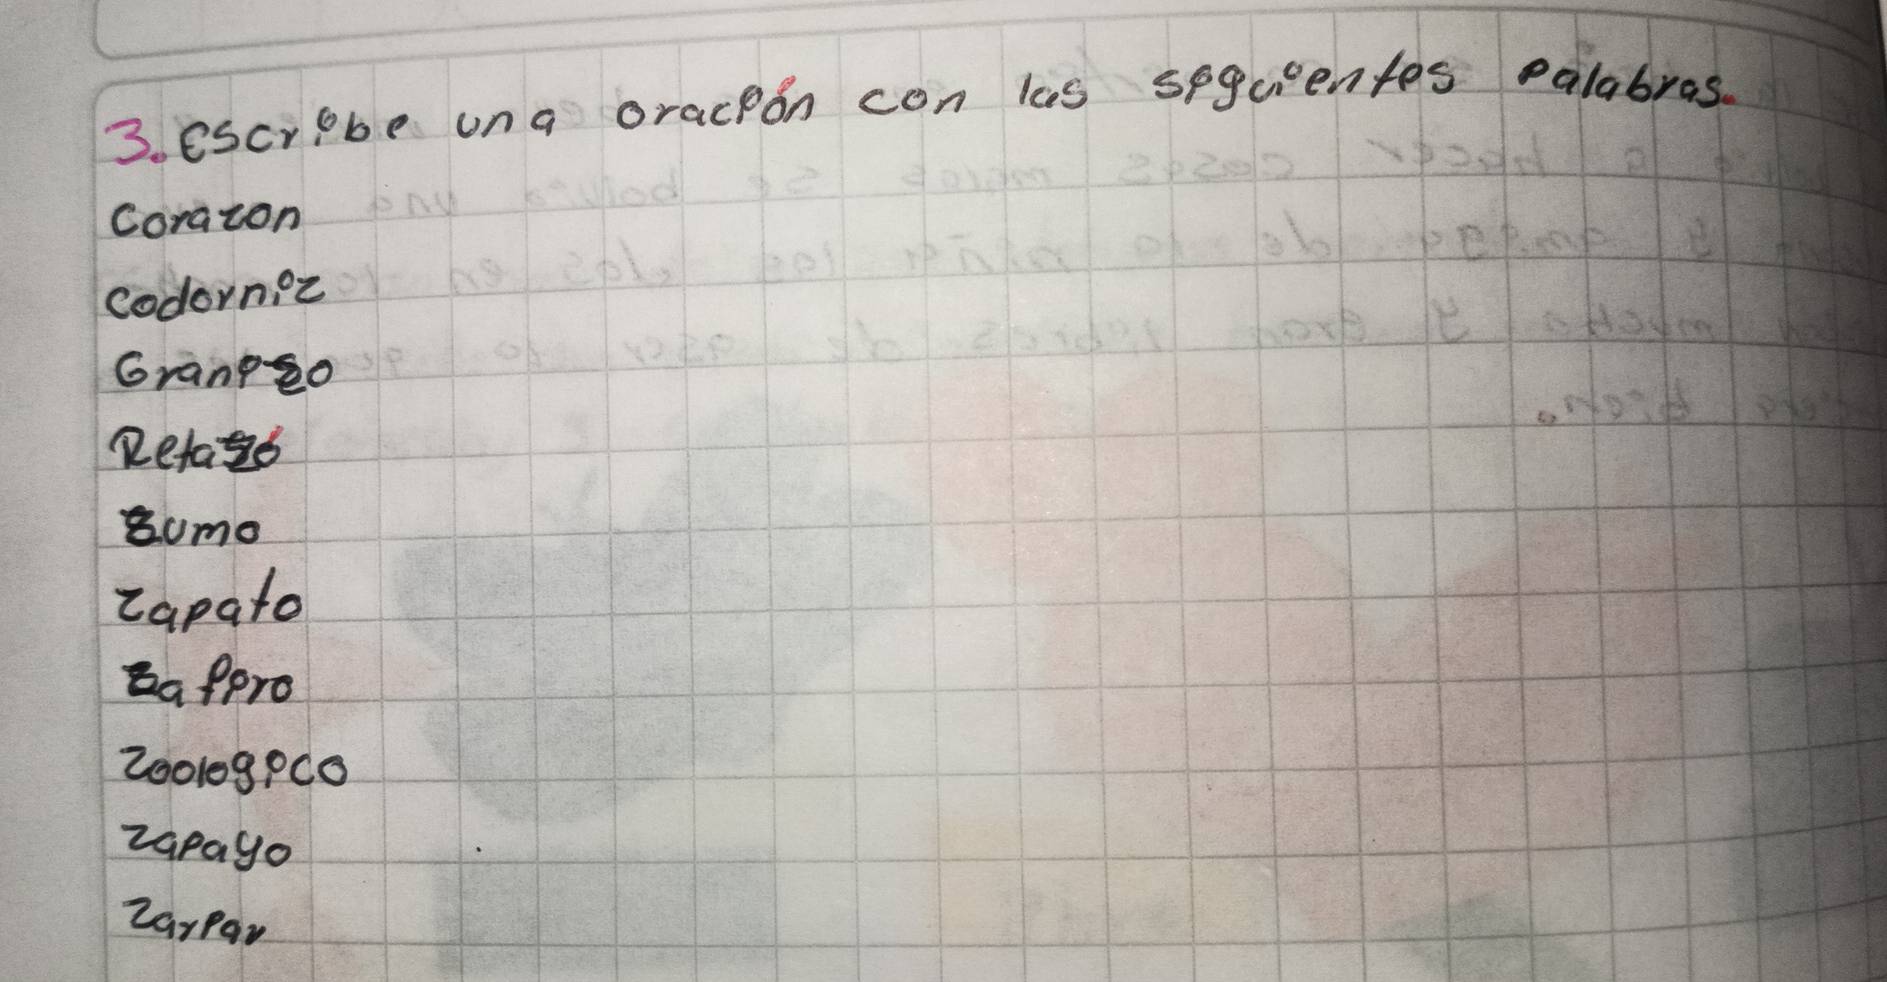 3. Escribe una oración con las siguientes palabras.
Corazon
Codorniz
Granizo
Retazó
Zumo
Zapato
Zafiro
Zoologico
Zapayo
Zarpar